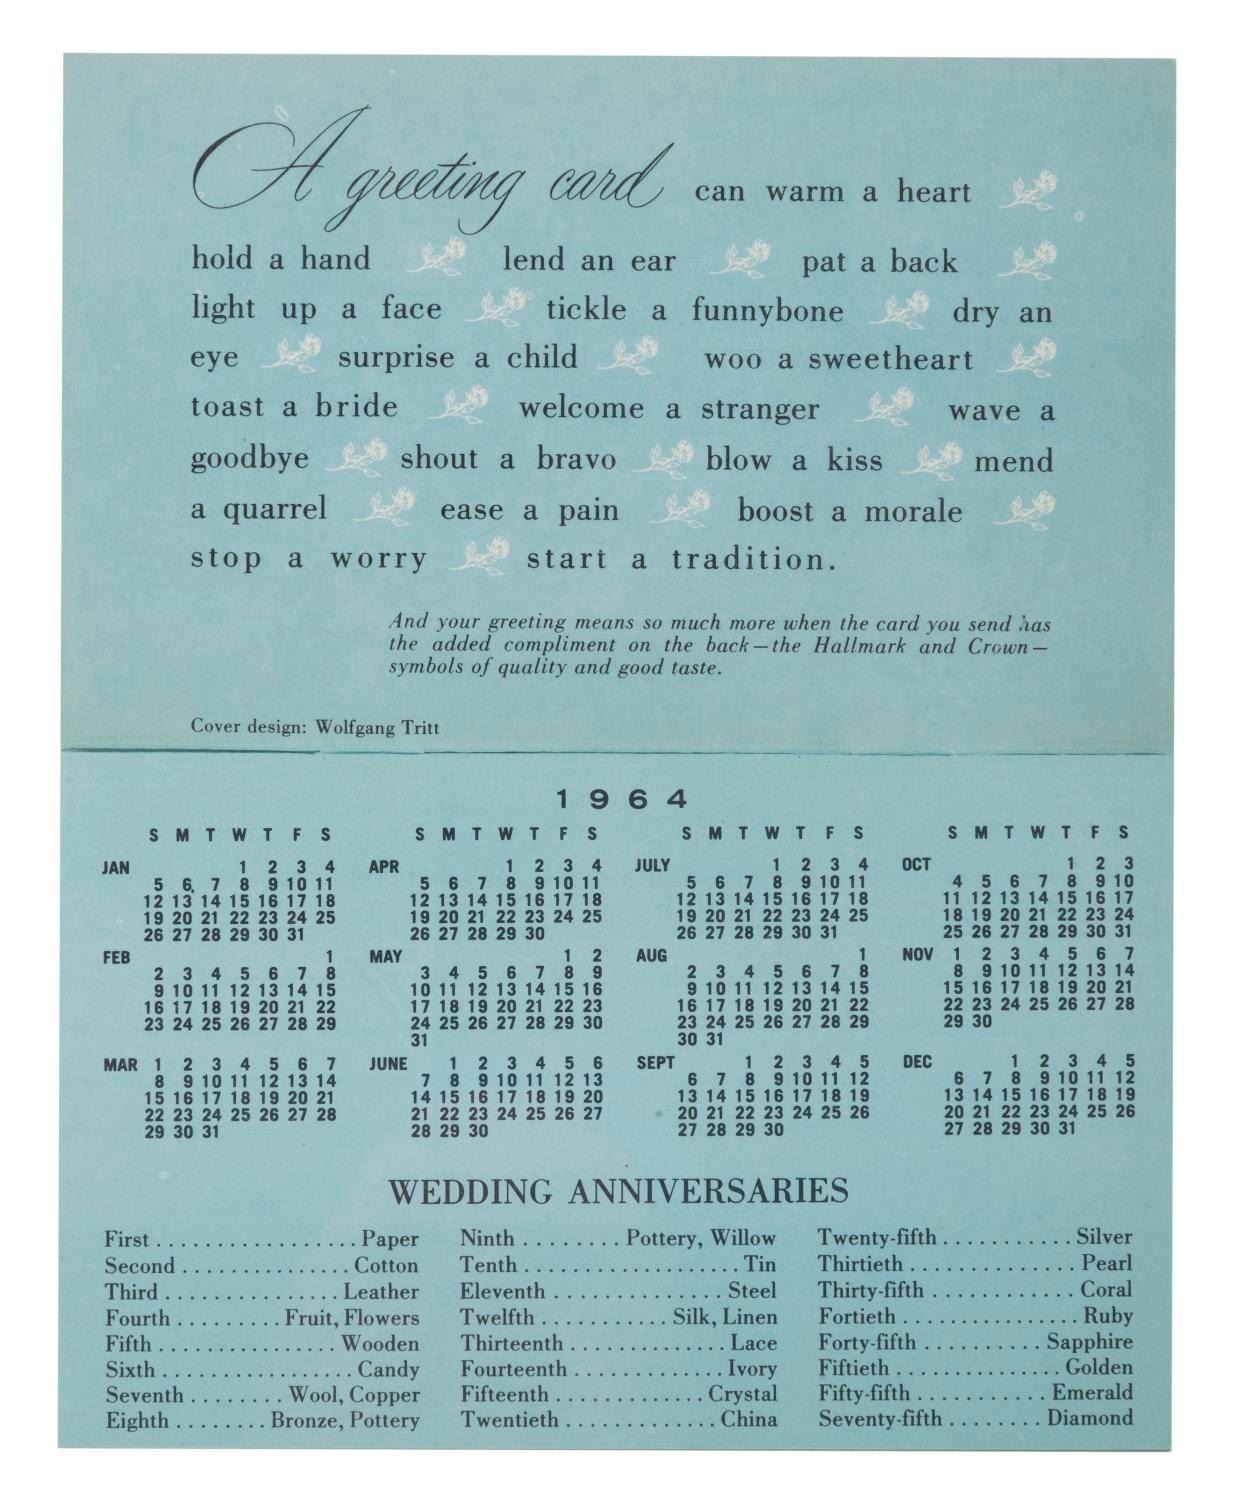 A greeting card can warm a heart
hold a hand lend an ear pat a back
light up a face tickle a funnybone dry an
eye surprise a child woo a sweetheart
toast a bride welcome a stranger wave a
goodbye shout a bravo blow a kiss mend
a quarrel ease a pain boost a morale
stop a worry start a tradition.
And your greeting means so much more when the card you send has
the added compliment on the back—the Hallmark and Crown—
symbols of quality and good taste.
Cover design: Wolfgang Tritt
1964
S M T W T F S
JAN 1 2 3 4
5 6 7 8 9 10 11
12 13 14 15 16 17 18
19 20 21 22 23 24 25
26 27 28 29 30 31
FEB 1
2 3 4 5 6 7 8
9 10 11 12 13 14 15
16 17 18 19 20 21 22
23 24 25 26 27 28 29
MAR 1 2 3 4 5 6 7
8 9 10 11 12 13 14
15 16 17 18 19 20 21
22 23 24 25 26 27 28
29 30 31
S M T W T F S
APR 1 2 3 4
5 6 7 8 9 10 11
12 13 14 15 16 17 18
19 20 21 22 23 24 25
26 27 28 29 30
MAY 1 2
3 4 5 6 7 8 9
10 11 12 13 14 15 16
17 18 19 20 21 22 23
24 25 26 27 28 29 30
31
JUNE 1 2 3 4 5 6
7 8 9 10 11 12 13
14 15 16 17 18 19 20
21 22 23 24 25 26 27
28 29 30
S M T W T F S
JULY 1 2 3 4
5 6 7 8 9 10 11
12 13 14 15 16 17 18
19 20 21 22 23 24 25
26 27 28 29 30 31
AUG 1
2 3 4 5 6 7 8
9 10 11 12 13 14 15
16 17 18 19 20 21 22
23 24 25 26 27 28 29
30 31
SEPT 1 2 3 4 5
6 7 8 9 10 11 12
13 14 15 16 17 18 19
20 21 22 23 24 25 26
27 28 29 30
S M T W T F S
OCT 1 2 3
4 5 6 7 8 9 10
11 12 13 14 15 16 17
18 19 20 21 22 23 24
25 26 27 28 29 30 31
NOV 1 2 3 4 5 6 7
8 9 10 11 12 13 14
15 16 17 18 19 20 21
22 23 24 25 26 27 28
29 30
DEC 1 2 3 4 5
6 7 8 9 10 11 12
13 14 15 16 17 18 19
20 21 22 23 24 25 26
27 28 29 30 31
WEDDING ANNIVERSARIES
First . . . . . . . . . . . . . . . . . . Paper
Second . . . . . . . . . . . . . . . Cotton
Third . . . . . . . . . . . . . . . . Leather
Fourth . . . . . . . . . Fruit, Flowers
Fifth . . . . . . . . . . . . . . . . Wooden
Sixth . . . . . . . . . . . . . . . . . . Candy
Seventh . . . . . . . . Wool, Copper
Eighth . . . . . . . . Bronze, Pottery
Ninth . . . . . . . . Pottery, Willow
Tenth . . . . . . . . . . . . . . . . . . . Tin
Eleventh . . . . . . . . . . . . . . . Steel
Twelfth . . . . . . . . . . . Silk, Linen
Thirteenth . . . . . . . . . . . . . . Lace
Fourteenth . . . . . . . . . . . . . Ivory
Fifteenth . . . . . . . . . . . . . Crystal
Twentieth . . . . . . . . . . . . . China
Twenty-fifth . . . . . . . . . . . Silver
Thirtieth . . . . . . . . . . . . . . . Pearl
Thirty-fifth . . . . . . . . . . . . . Coral
Fortieth . . . . . . . . . . . . . . . . Ruby
Forty-fifth . . . . . . . . . . Sapphire
Fiftieth . . . . . . . . . . . . . . . Golden
Fifty-fifth . . . . . . . . . . . Emerald
Seventy-fifth . . . . . . . . Diamond